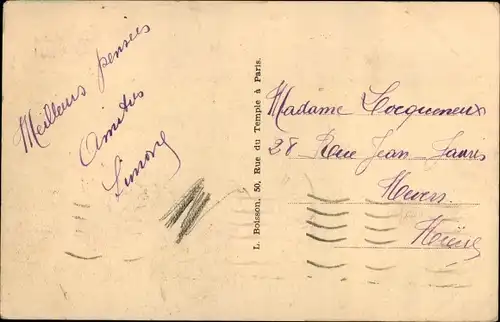 Meilleurs pensées
Amitiés
Simone
L. Boisson, 50, Rue du Temple à Paris.
Madame Cocqueneux
28 Rue Jean-Jaurès
Nevers
Nièvre